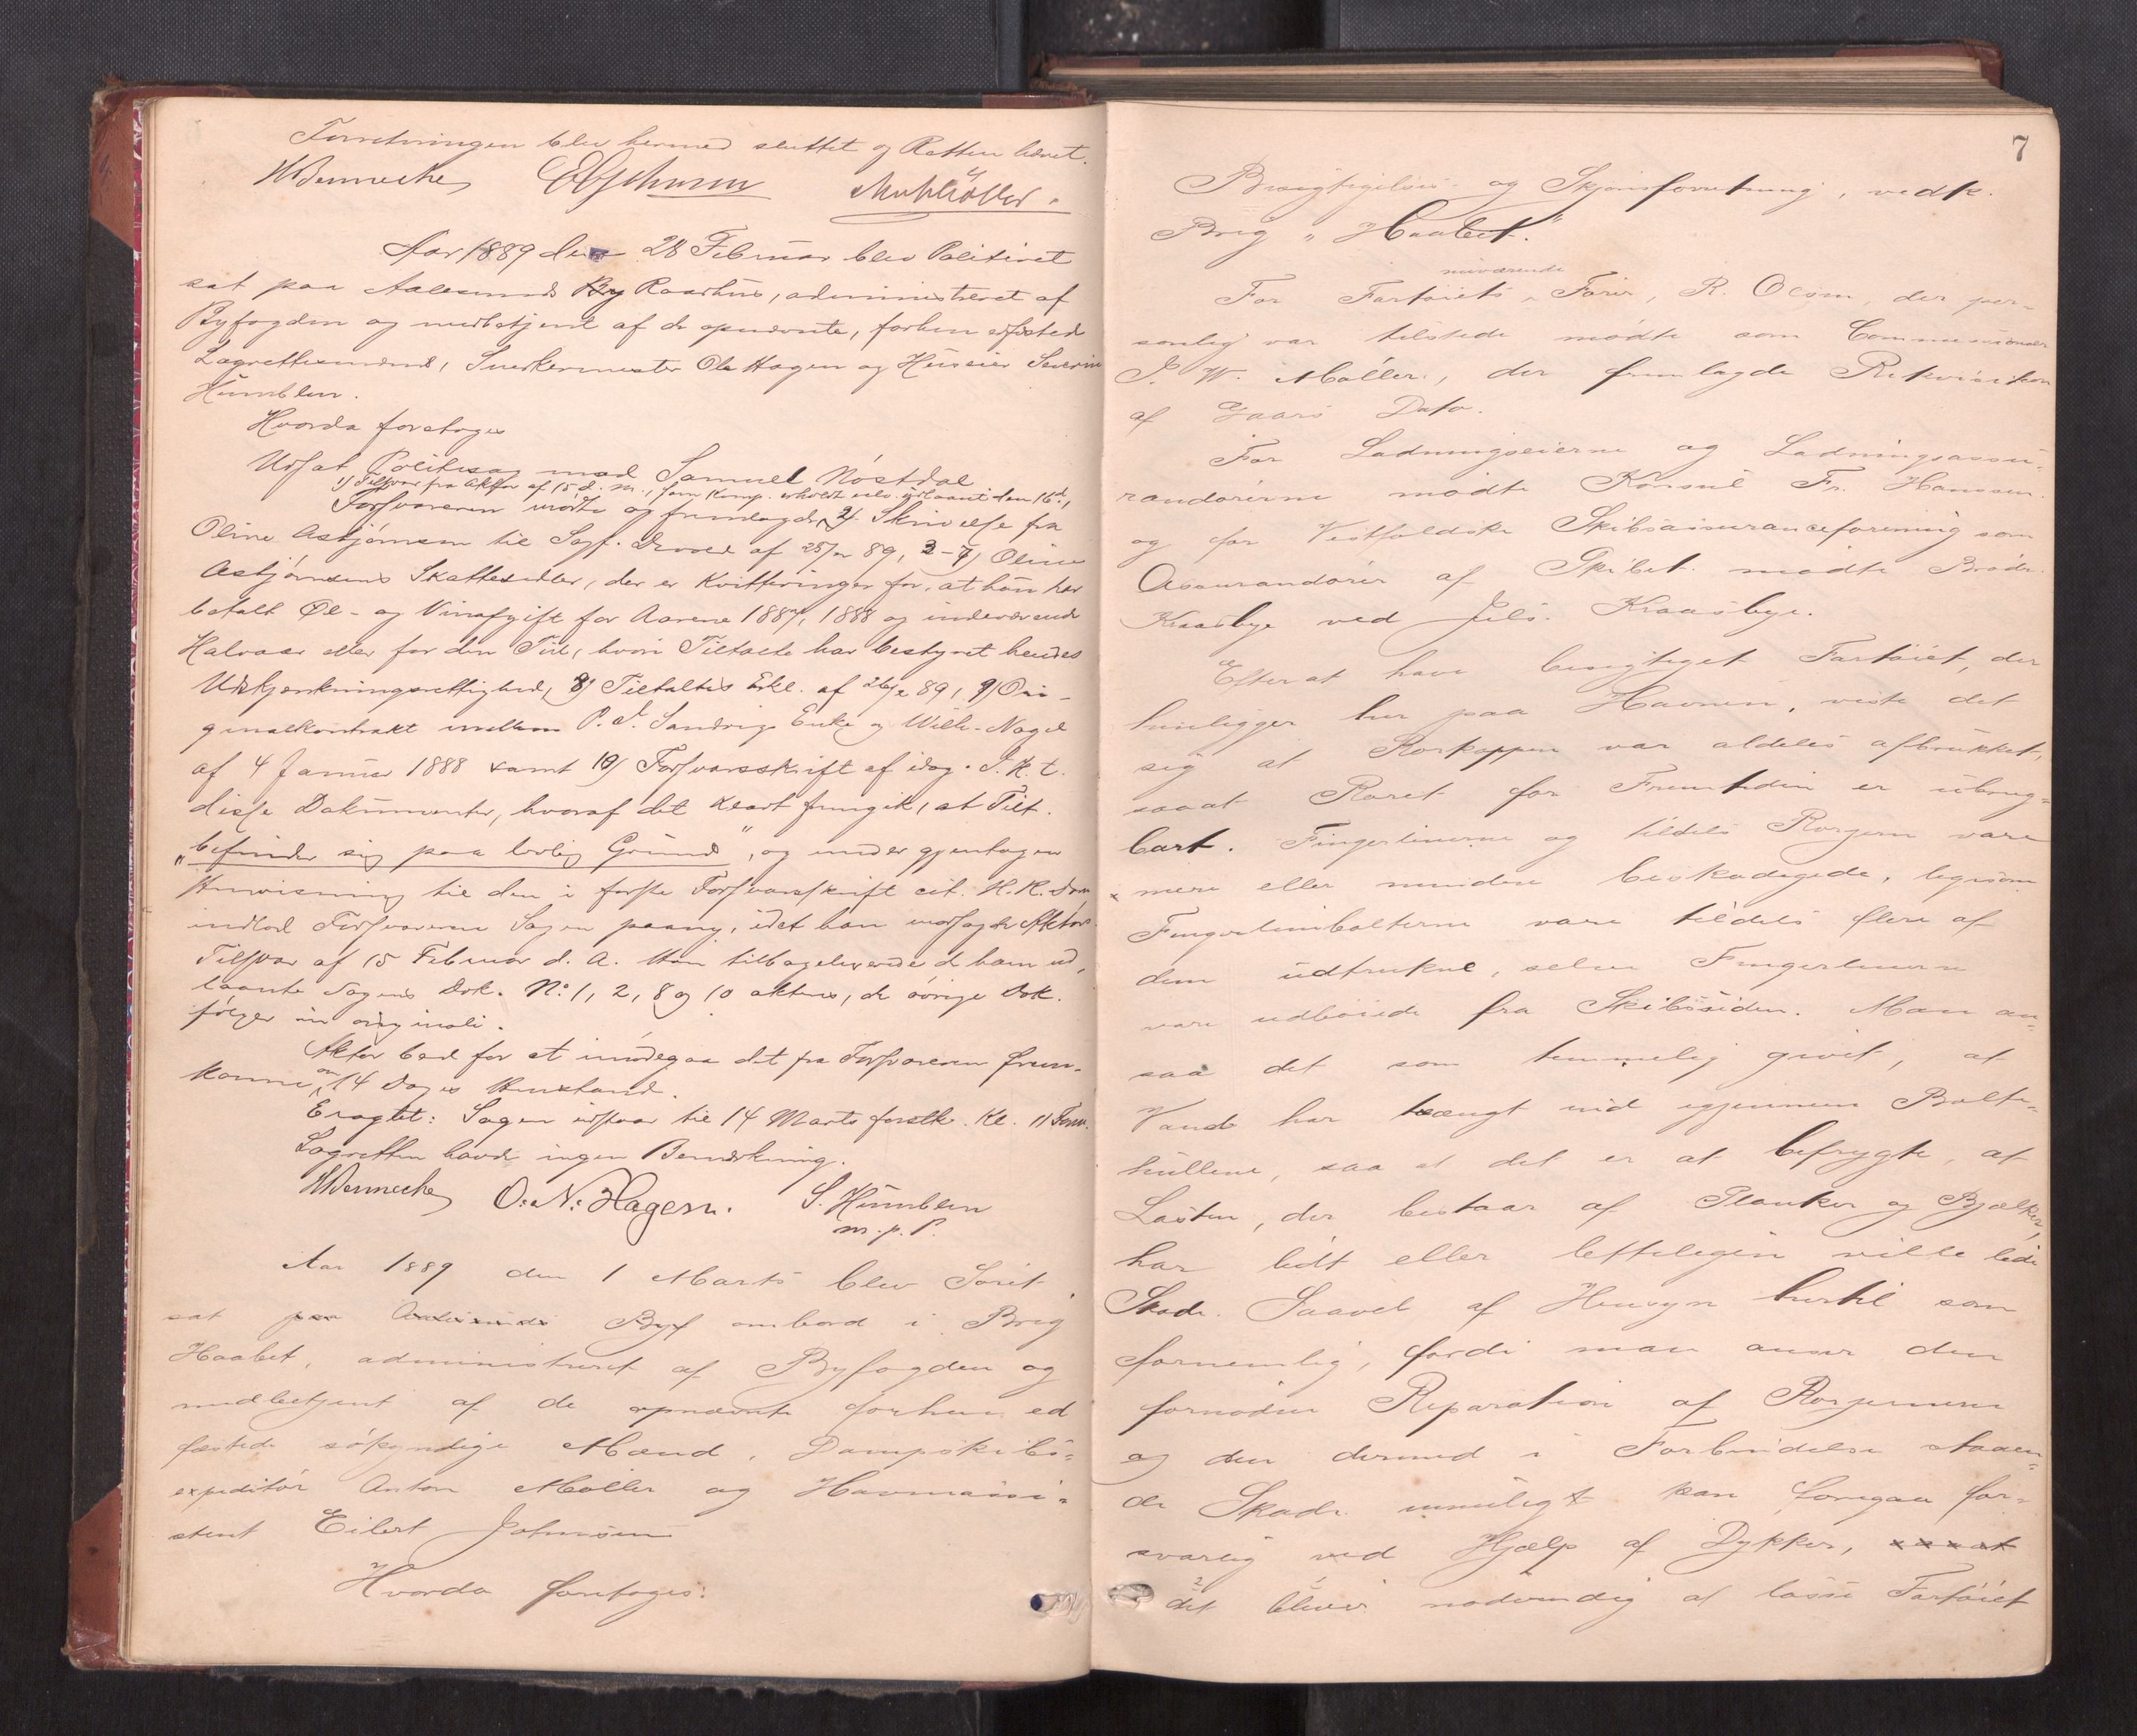 Forretningen blev hermed sluttet og Retten hævet.
Aar 1889 den 28 Februar blev Politiret
sat paa Aalesunds By Raadhus, administreret af
Byfogden og medbetjent af de opnævnte, forhen edfæstede
Lagrettesmænd, Snedkermester Ole Hagen og Huseier Severin
Humblen.
Hvorda foretoges
Udsat Politisag mod Samuel Nöstdal
1) Tilsvar fra Aktor af 15 d. M., som Komp. erholdt udlaant den 16d.,
Forsvareren mødte og fremlagde 2) Skrivelse fra
Oline Asbjörnsen til Sagf. af 25/2 89, 3-7) Oline
Asbjörnsens Skattesedler, der er Kvitteringer for, at hun har
betalt Øl- og Vinafgift for Aarene 1887, 1888 og indeværende
Halvaar eller for den Tid, hvori Tiltalte har bestyret hendes
Udskjænkningsrettighed, 8) Tiltaltes Erkl. af 26/2 89, 9) Ori-
ginalkontrakt mellem P. J. Sandvigs Enke og Wilh. Nagel
af 4 Januar 1888 samt 10) Forsvarsskrift af idag. I. H. t.
disse Dokumenter, hvoraf det klart fremgik, at Tilt.
"befinder sig paa lovlig Grund", og under gjentagen
Henvisning til den i første Forsvarsskrift cit. H. R. Dom
indlod Forsvareren Sagen paany, idet han modsagde Aktors
Tilsvar af 15 Februar d. A. Han tilbageleverede de ham ud-
laante Sagens Dok. No. 1, 2, 8 og 10 aktens, de övrige Dok.
følger in originali.
Aktor bad for at imödegaa det fra Forsvareren frem-
komne om 14 Dages Henstand.
Eragtet: Sagen udsaar til 14 Marts førstk. Kl. 11 Form.
Lagretten havde ingen Bemærkning.
WDennecke O: N: Hagen. S. Humblen
m. p. P.
Aar 1889 den 1 Marts blev Søret
sat paa Aalesunds Byf ombord i Brig
Haabet, administreret af Byfogden og
medbetjent af de opnævnte forhen ed
fæstede sökyndige Mænd, Dampskibs-
expeditör Anton Møller og Havneassi-
stent Eilert Johnsen
Hvorda foretoges:
7
Besigtigelses- og Skjönsforretning, vedk.
Brig "Haabet."
nuværende
For Fartøiets Fører, R. Olsen, der per-
sonlig var tilstede mødte som Commissionær
J. W. Møller, der fremlagde Rekvisition
af Gaars Dato.
For Ladningseierne og Ladningsassu-
randörerne mødte Konsul Fr. Hanssen
og for Vestfoldske Skibsassuranceforening som
Assurandörer af Skibet mødte Brødr.
Kraasbye ved Jils. Kraasbye.
Efter at have besigtiget Fartøiet, der
henligger her paa Havnen, viste det
sig at Rorkoppen var aldeles afbrukket,
saaat Roret for Fremtiden er ubrug-
bart. Fingerlinerne og tildels Rorjern vare
mere eller mindre beskadigede, ligesom
Fingerlinbolterne vare tildels flere af
dem udtrukne, selve Fingerlinerne
vare udböiede fra Skibssiden. Man an-
saa det som temmelig givet, at
Vand har trængt ind igjennem Bolte-
hullene, saa at det er at befrygte, at
Lasten, der bestaar af Planker og Bjælker,
har lidt eller lettelegen ville lide
Skade. Saavel af Hensyn hertil som
fornemlig, fordi man anser den
fornødne Reparation af Rorjernene
og den dermed i Forbindelse staaen-
de Skade umuligt kan foregaa for-
svarlig ved Hjælp af Dykker,
det bliver nødvendig at losse Fartøiet